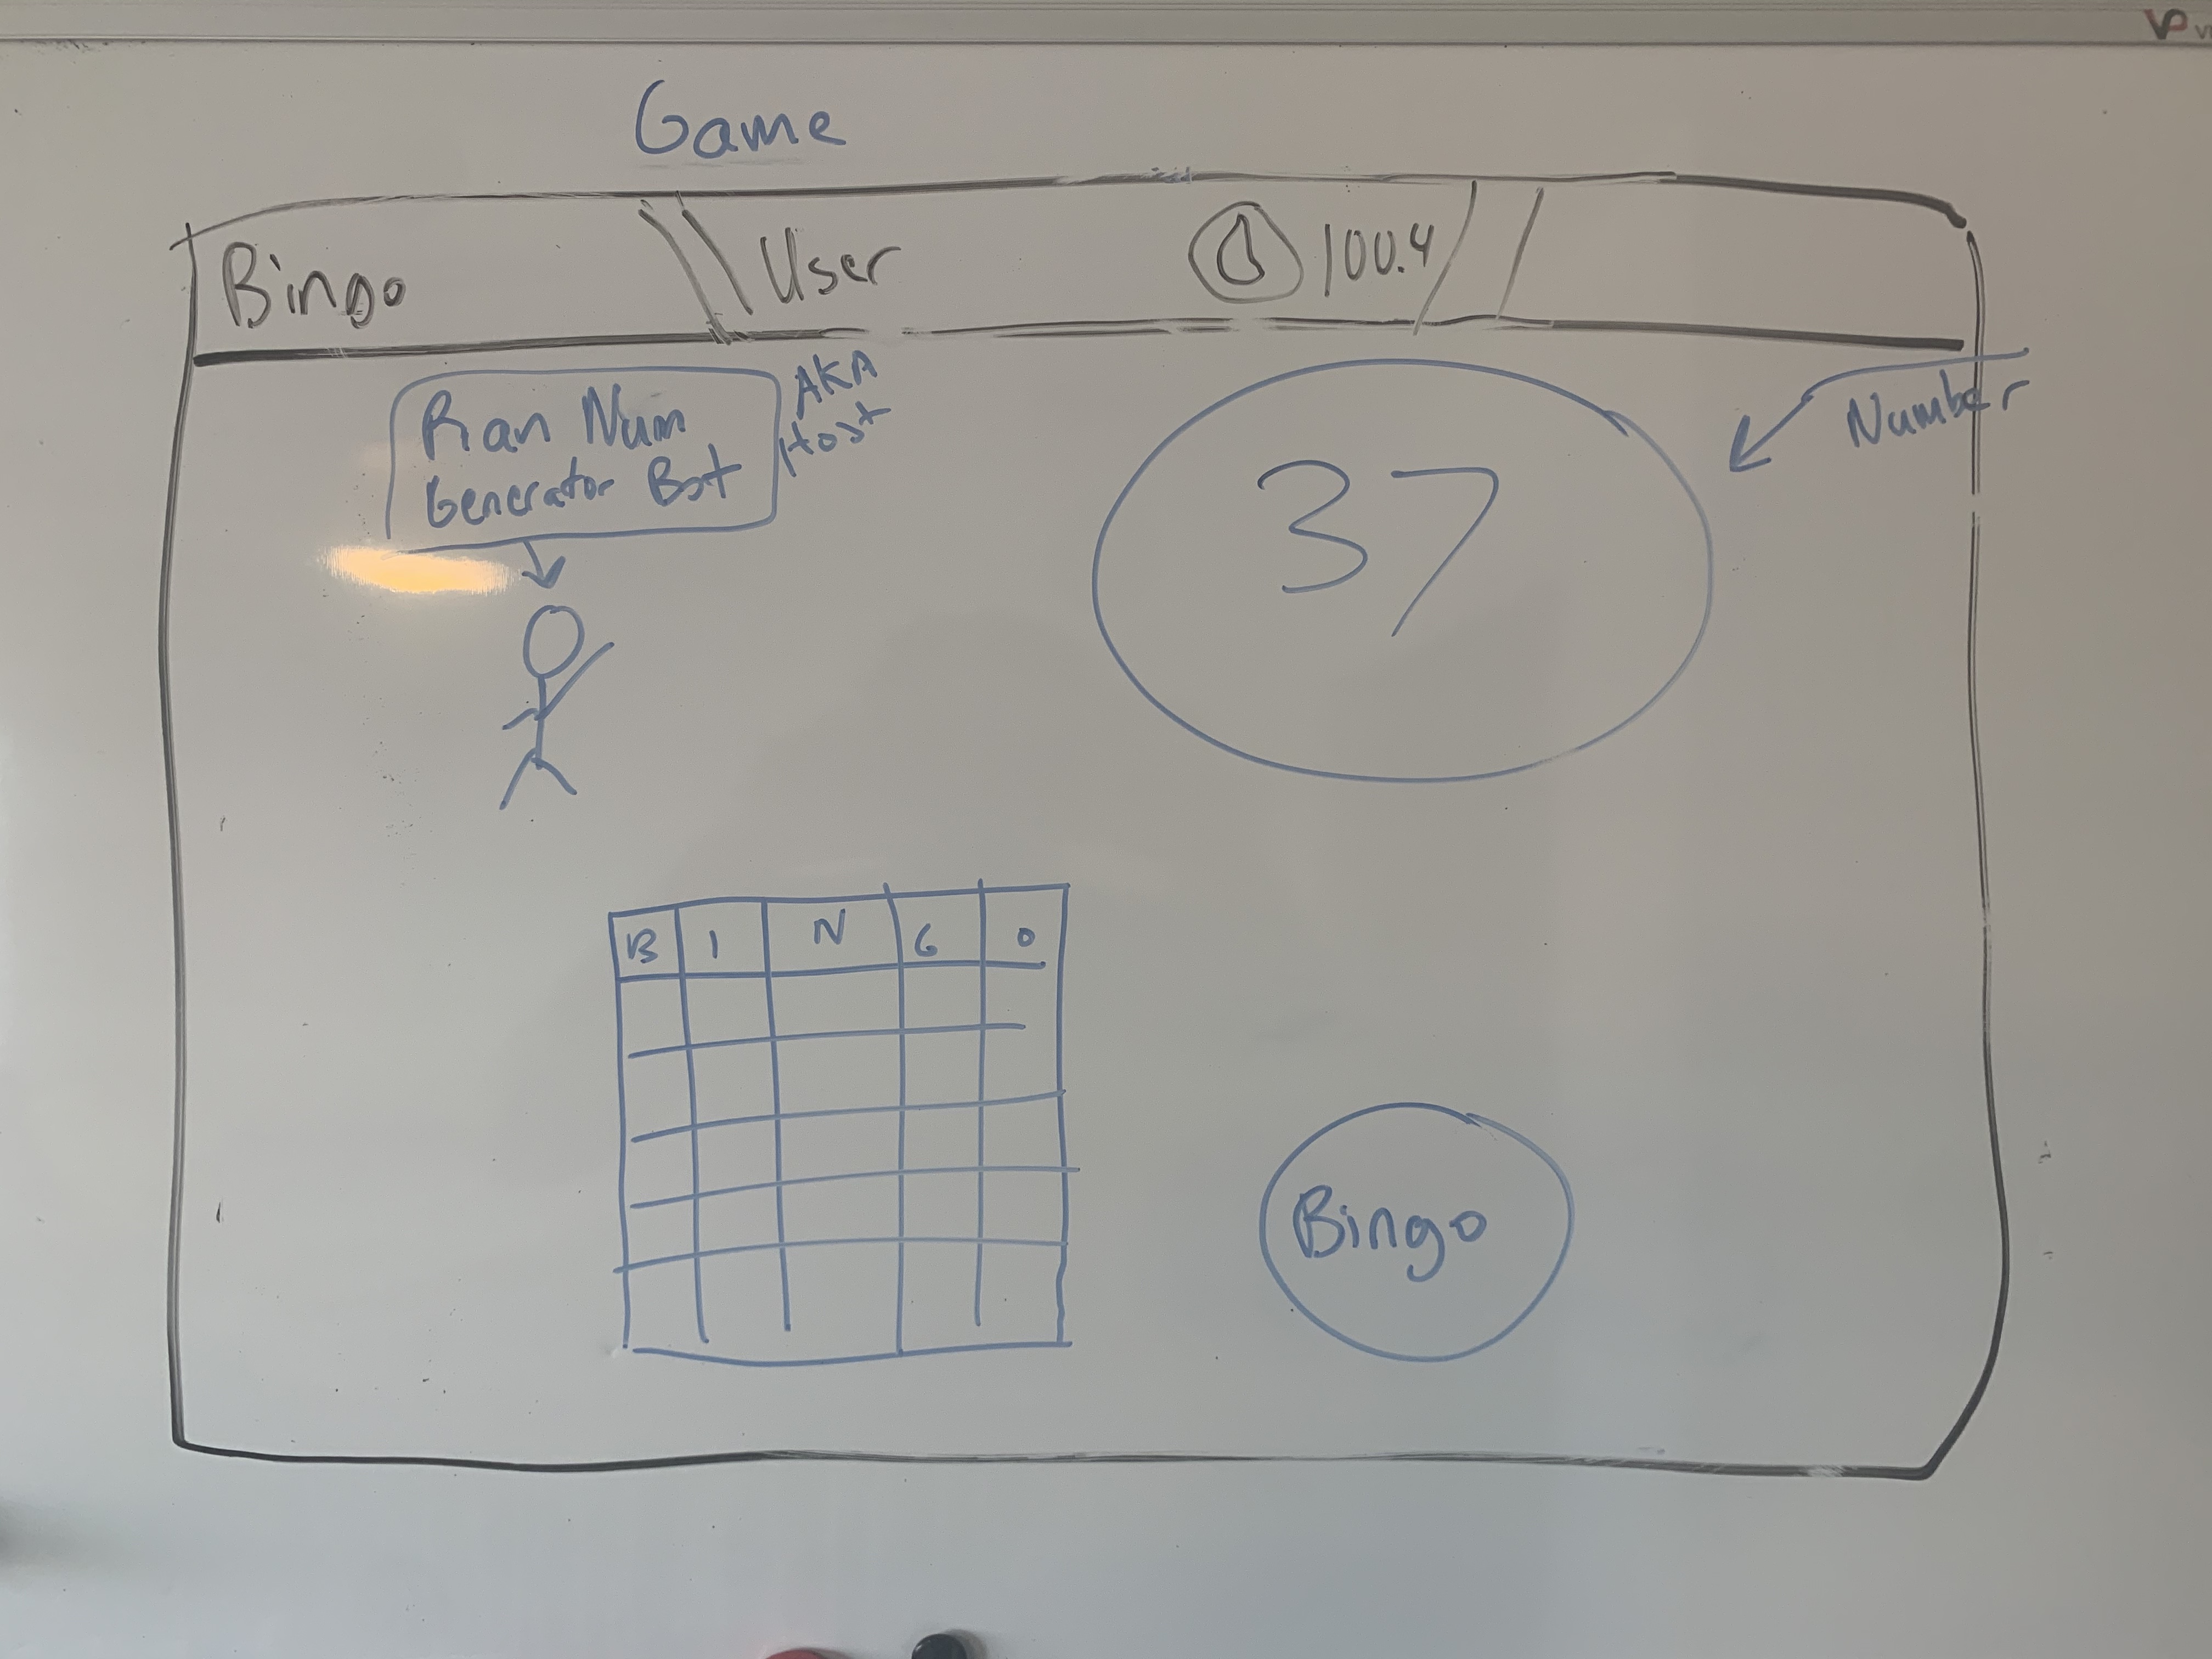 Game
Bingo
User
100.4
Ran Num
Generator Bot
AKA
Host
Number
37
B I N G O
Bingo